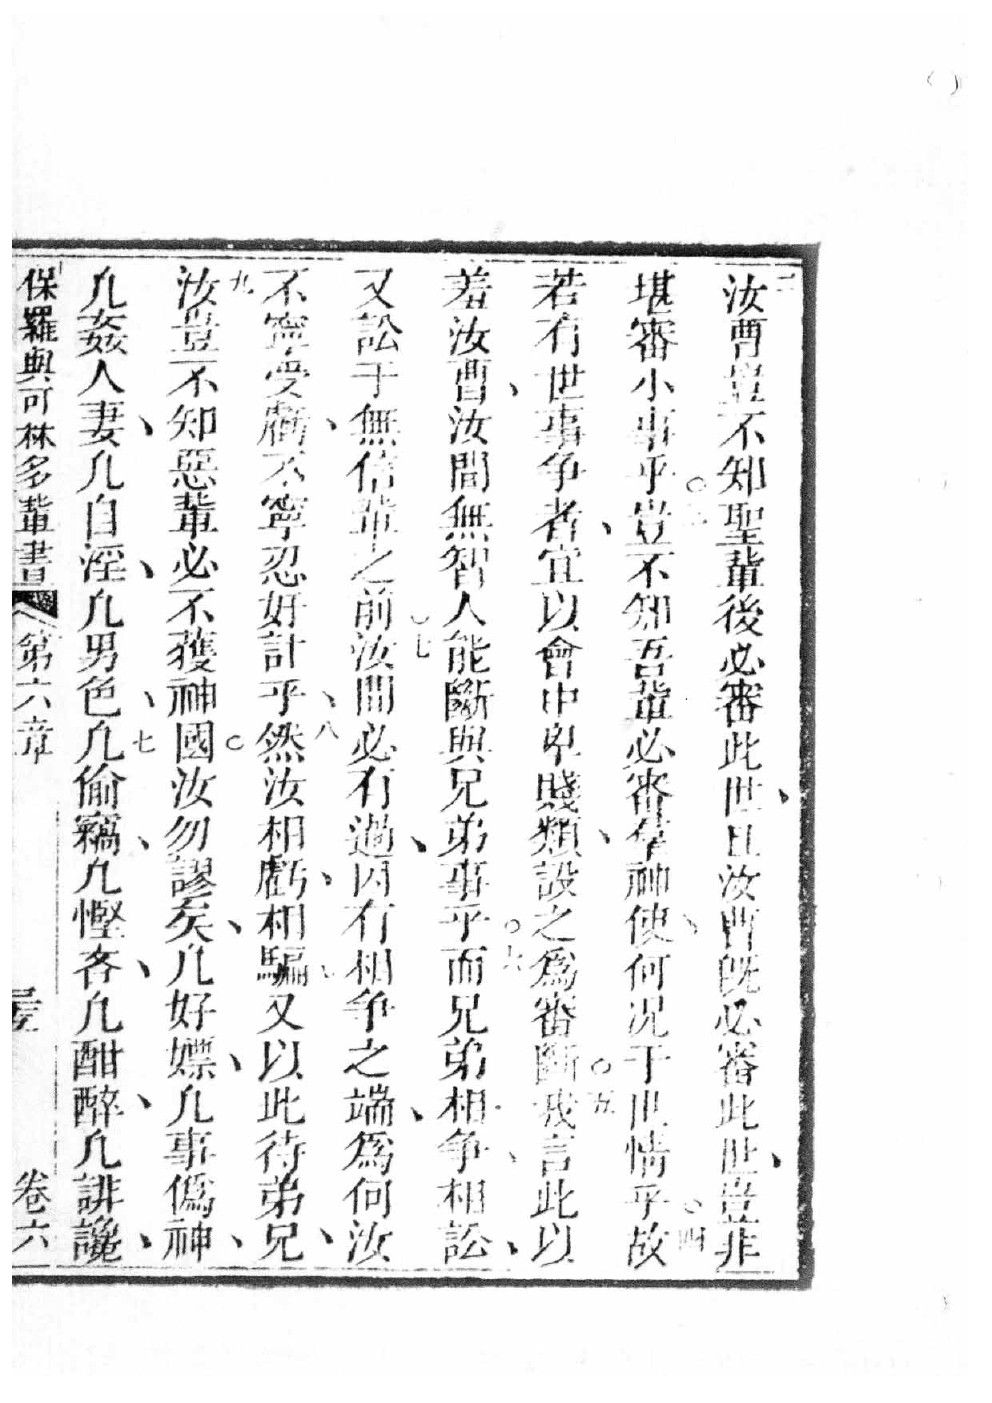 二汝曹豈不知聖輩後必審此世、且汝曹既必審此世、豈非
堪審小事乎。三豈不知吾輩必審羣神使、何况于世情乎。四故
若有世事爭者、宜以會中卑賤類、設之為審斷。五我言此以
羞汝曹、汝間無智人能斷與兄弟事乎。六而兄弟相爭、相訟、
又訟于無信輩之前。七汝間必有過、因有相爭之端、為何汝
不寧受虧、不寧忍好計乎、八然汝相虧、相騙、又以此待弟兄、
九汝豈不知惡輩必不獲神國。汝勿謬矣、凢好嫖、凢事偽神、
凢姦人妻、凢自淫、凢男色、七凢偷竊、凢慳吝、凢酣醉、凢誹讒、
保羅與可林多輩書 第六章 卷六